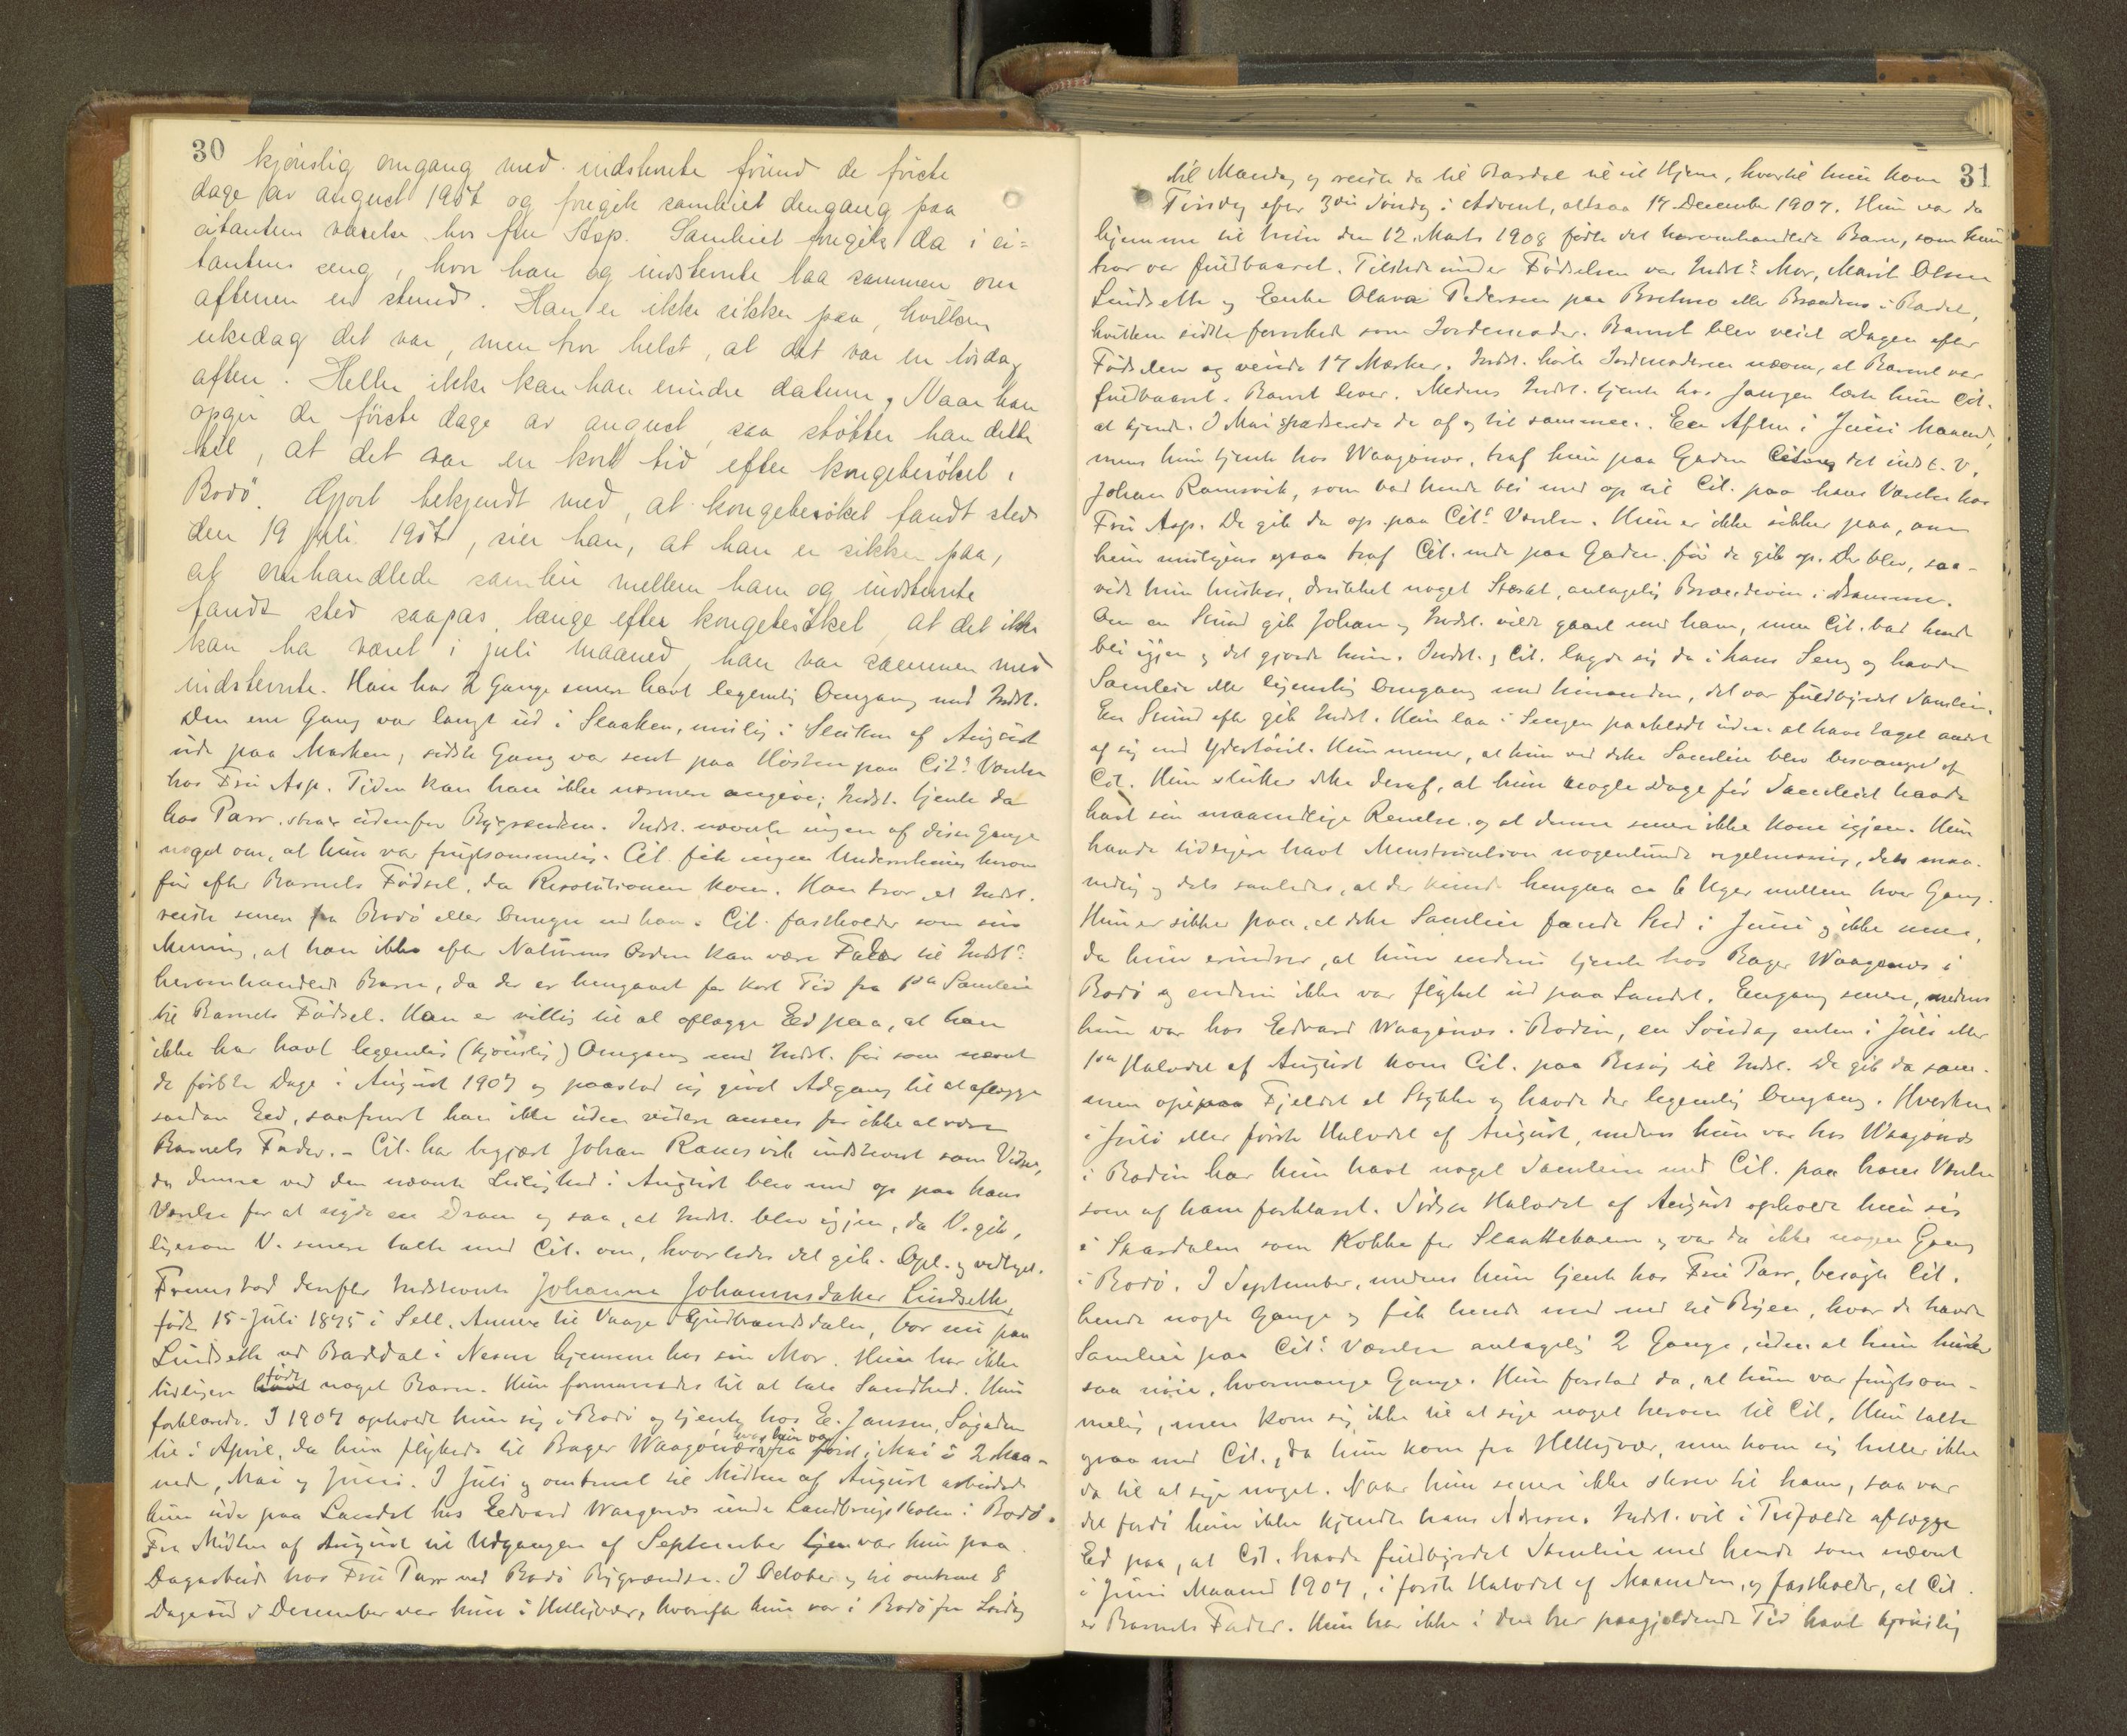 30
kjønslig omgang med indstevnte førend de første
dage av august 1907 og foregik samleiet dengang paa
citantens værelse hos fru Asp. Samleiet foregik da i ci=
tantens seng, hvor han og indstevnte laa sammen om
aftenen en stund. Han er ikke sikker paa, hvilken
ukedag det var, men tror helst, at det var en lørdag
aften. Heller ikke kan han erindre datum. Naar han
opgir de første dage av august, saa støtter han dette
til, at det var en kort tid efter kongebesøket i
Bodø. Gjort bekjendt med, at kongebesøket fandt sted
den 19 juli 1907, sier han, at han er sikker paa,
at omhandlede samleie mellem ham og indstevnte
fandt sted saapas længe efter kongebesøket, at det ikke
kan ha været i juli maaned, han var sammen med
indstevnte. Han har 2 Gange senere havt legemlig Omgang med Indst.
Den ene Gang var langt ud i Slaatten, muligens i Slutten af August
ude paa Marken; sidste Gang var sent paa Høsten paa Cit.s Værelse
hos Fru Asp. Tiden kan han ikke nærmere angive; Indst. tjente da
hos Parr, strax udenfor Bygrændsen. Indst. nævnte ingen af disse Gange
noget om, at hun var frugtsommelig. Cit. fik ingen Underretning herom
før efter Barnets Fødsel, da Resolutionen kom. Han tror, at Indst.
reiste senere fra Bodø eller Omegn end han. Cit. fastholder som sin
Mening, at han ikke efter Naturens Orden kan være Fader til Indst.s
heromhandlede Barn, da der er hengaaet for kort Tid fra 1ste Samleie
til Barnets Fødsel. Han er villig til at aflægge Eed paa, at han
ikke har havt legemlig (kjønslig) Omgang med Indst. før som nævnt
de første Dage i August 1907 og paastod sig givet Adgang til at aflægge
saadan Eed, saafremt han ikke uden videre ansees for ikke at være
Barnets Fader. - Cit. har begjært Johan Ramsvik indstevnt som Vidne,
da denne ved den nævnte Leilighed i August blev med op paa hans
Værelse for at nyde en Dram og saa, at Indst. blev igjen, da V. gik,
ligesom V. senere talte med Cit. om, hvorledes det gik. Opl. og vedtaget.
Fremstod derefter Indstevnte Johanne Johannesdatter Lindseth,
født 15 Juli 1875 i Sell, Annex til Vaage i Gudbrandsdalen, bor nu paa
Lindseth ved Bardal i Nesna hjemme hos sin Mor. Hun har ikke
tidligere født noget Barn. Hun formanedes til at tale Sandhed. Hun
forklarede. I 1907 opholdt hun sig i Bodø og tjente hos E. Jansen, Søgaden
til i April, da hun flyttede til Bager Waagønæs, hvor hun var i 2 Maa-
neder, Mai og Juni. I Juli og omtrent til Midten af August arbeidede
hun ude paa Landet hos Edvard Waagønæs under Landbrugsskolen i Bodø.
Fra Midten af August til Udgangen af September var hun paa
Dagarbeide hos Fru Parr ved Bodø Bygrændse. I October og til omtrent 8
Dage ud i December var hun i Helligvær, hvorefter hun var i Bodø fra Lørdag
31
til Mandag og reiste da til Bardal til sit Hjem, hvortil hun kom
Tirsdag efter 3die Søndag i Advent, altsaa 17 December 1907. Hun var da
hjemme til hun den 12 Marts 1908 fødte det heromhandlede Barn, som hun
tror var fuldbaaret. Tilstede under Fødselen var Indst.s Mor, Marit Olsen
Lindseth og Enke Olava Pedersen paa eller i Bardal,
hvilken sidste forrettede som Jordemoder. Barnet blev veiet Dagen efter
Fødselen og veiede 17 Marker. Indst. hørte Jordmoderen nævne, at Barnet var
fuldbaaret. Barnet lever. Medens Indst. tjente hos Jansen lærte hun Cit.
at kjende. I Mai spadserede de af og til sammen. En Aften i Juni Maaned,
mens hun tjente hos Waagønæs, traf hun paa Gaden det indst. V.
Johan Ramsvik, som bad hende bli med op til Cit. paa hans Værelse hos
Fru Asp. De gik da op paa Cit.s Værelse. Hun er ikke sikker paa, om
hun muligens ogsaa traf Cit. nede paa Gaden før de gik op. Der blev, saa-
vidt hun husker, drukket noget Stærkt, antagelig Brændevin i Dramme.
Om en Stund gik Johan og Indst. vilde gaaet med ham, men Cit. bad hende
bli igjen og det gjorde hun. Indst. og Cit. lagde sig da i hans Seng og havde
Samleie eller legemlig Omgang med hinanden, det var fuldbyrdet Samleie.
En Stund efter gik Indst. Hun laa i Sengen paaklædt uden at have taget andet
af sig end Ydertøiet. Hun mener, at hun ved dette Samleie blev besvangret af
Cit. Hun slutter dette deraf, at hun nogle Dage før Samleiet havde
havt sin maanedlige Renselse og at denne senere ikke kom igjen. Hun
havde tidligere havt Menstruation nogenlunde regelmæssig, dels maa-
nedlig og dels saaledes, at der kunde hengaa ca 6 Uger mellem hver Gang.
Hun er sikker paa, at dette Samleie fandt Sted i Juni og ikke senere,
da hun erindrer, at hun endnu tjente hos Bager Waagønæs i
Bodø og endnu ikke var flyttet ud paa Landet. Engang senere, medens
hun var hos Edvard Waagønæs i Bodin, en Søndag enten i Juli eller
1ste Halvdel af August kom Cit. paa Besøg til Indst. De gik da sam-
men op i Fjeldet et Stykke og havde der legemlig Omgang. Hverken
i Juli eller første Halvdel af August, medens hun var hos Waagønæs
i Bodin har hun havt noget Samleie med Cit. paa hans Værelse
som af ham forklaret. Sidste Halvdel af August opholdt hun sig
i Skarsdalen som Kokke for Slaattekarene og var da ikke nogen Gang
i Bodø. I September, medens hun tjente hos Fru Parr, besøgte Cit.
hende nogle Gange og fik hende med ned til Byen, hvor de havde
Samleie paa Cit.s Værelse antagelig 2 Gange, uden at hun husker
saa nøie, hvormange Gange. Hun forstod da, at hun var frugtsom-
melig, men kom sig ikke til at sige noget herom til Cit. Hun talte
ogsaa med Cit., da hun kom fra Helligvær, men kom sig heller ikke
da til at sige noget. Naar hun senere ikke skrev til ham, saa var
det fordi hun ikke kjendte hans Adresse. Indst. vil i Tilfælde aflægge
Ed paa, at Cit. havde fuldbyrdet Samleie med hende som nævnt
i Juni Maaned 1907, i første Halvdel af Maaneden, og fastholder, at Cit.
er Barnets Fader. Hun har ikke i den her paagjældende Tid havt kjønslig